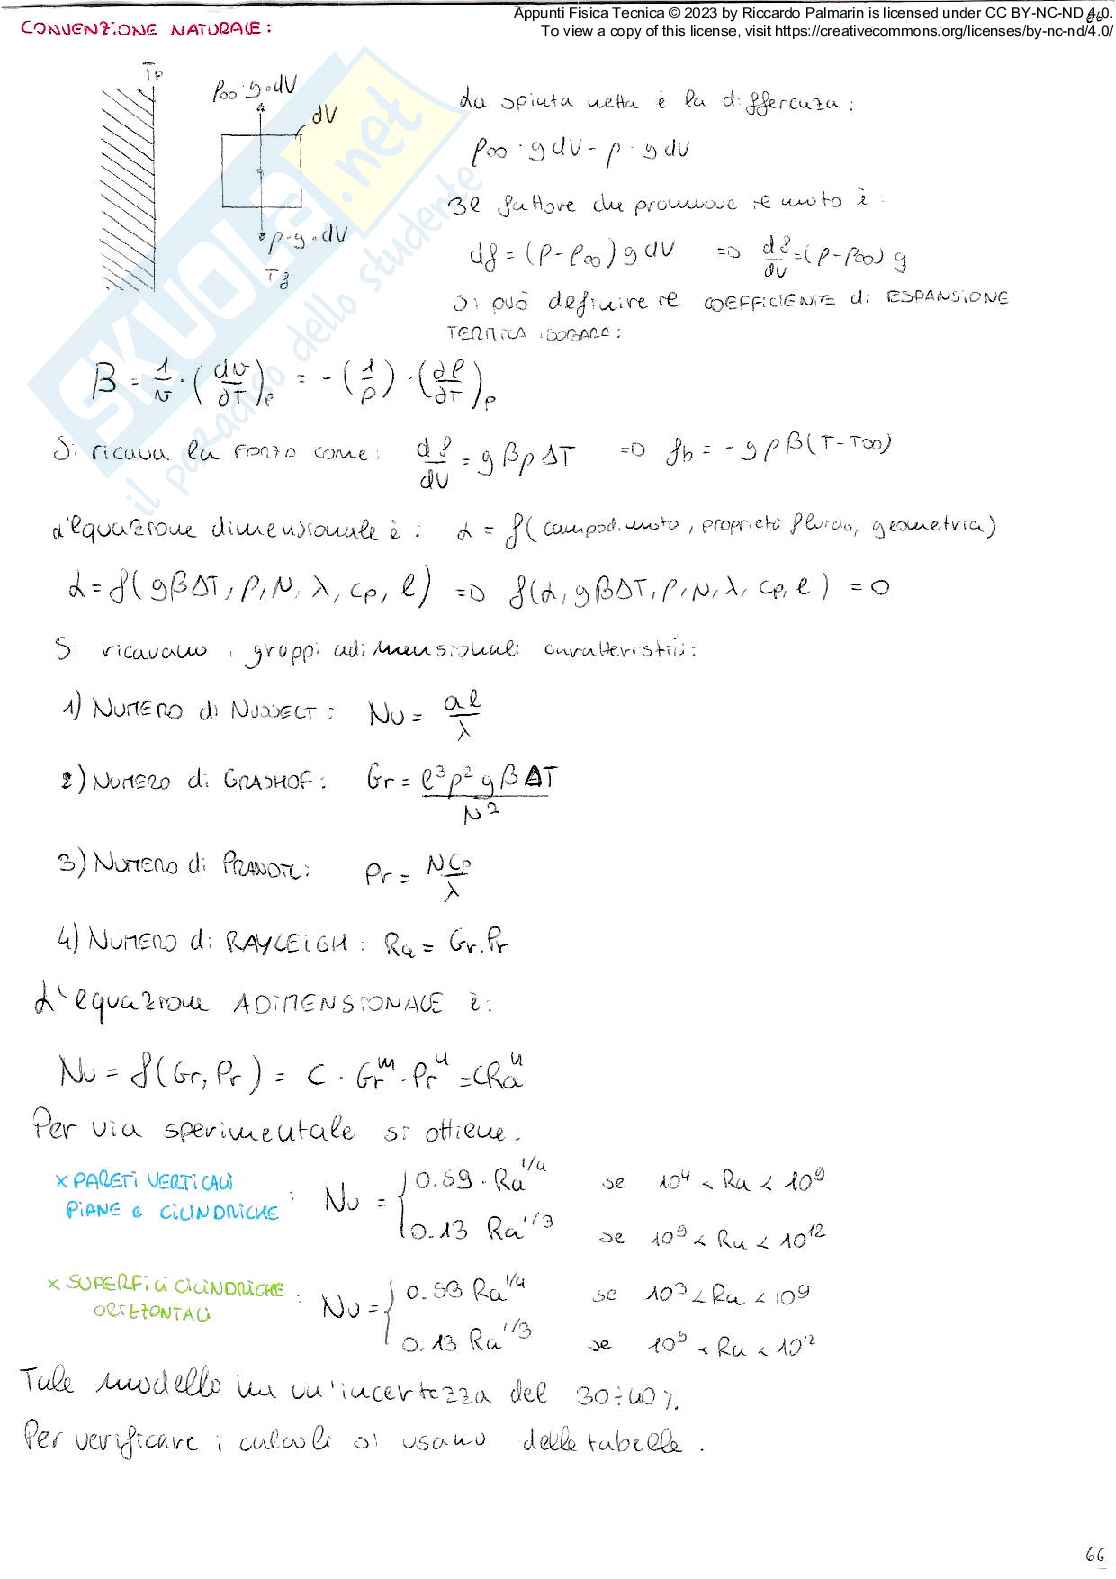 Appunti Fisica Tecnica © 2023 by Riccardo Palmarin is licensed under CC BY-NC-ND 4.0.
To view a copy of this license, visit https://creativecommons.org/licenses/by-nc-nd/4.0/
CONVENZIONE NATURALE:
Tp
ρ∞·g·dV
dV
ρ·g·dV
Tf
La spinta netta è la differenza:
ρ∞·g dV - ρ·g dV
Il fattore che promuove il moto è
df = (ρ-ρ∞) g dV => df/dV = (ρ-ρ∞) g
Si può definire il COEFFICIENTE di ESPANSIONE
TERMICA ISOBARA:
β = 1/v · (∂v/∂T)p = - (1/ρ) · (∂ρ/∂T)p
Si ricava la forza come: df/dV = g β ρ ΔT => fb = - g ρ β (T-T∞)
L'equazione dimensionale è: α = f( campo di moto, proprietà fluido, geometria)
α = f( gβΔT, ρ, μ, λ, cp, l ) => f(α, gβΔT, ρ, μ, λ, cp, l ) = 0
Si ricavano i gruppi adimensionali caratteristici:
1) NUMERO di NUSSELT: Nu = αl/λ
2) NUMERO di GRASHOF: Gr = l³ρ² g β ΔT / μ²
3) NUMERO di PRANDTL: Pr = μ cp / λ
4) NUMERO di RAYLEIGH: Ra = Gr·Pr
L'equazione ADIMENSIONALE è:
Nu = f(Gr, Pr) = C · Gr^m · Pr^n = C Ra^n
Per via sperimentale si ottiene.
x PARETI VERTICALI
PIANE e CILINDRICHE :
Nu = { 0.59 · Ra^1/4 se 10⁴ < Ra < 10⁹
0.13 Ra^1/3 se 10⁹ < Ra < 10¹²
x SUPERFICI CILINDRICHE :
ORIZZONTALI
Nu = { 0.53 Ra^1/4 se 10³ < Ra < 10⁹
0.13 Ra^1/3 se 10⁹ < Ra < 10¹²
Tale modello ha un'incertezza del 30÷40%.
Per verificare i calcoli si usano delle tabelle.
66
SKUOLA.net
il paradiso dello studente